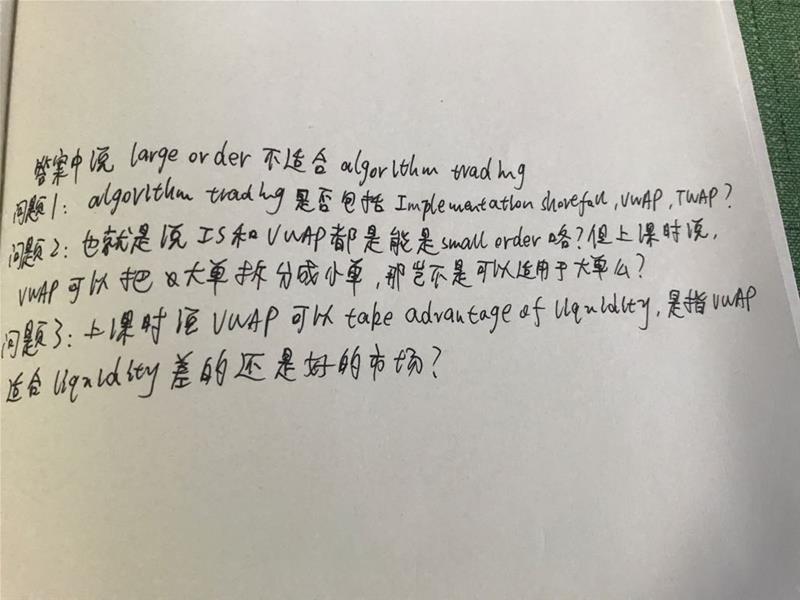 答案中说 large order 不适合 algorithm trading
问题1: algorithm trading 是否包括 Implementation shorefall, VWAP, TWAP?
问题2: 也就是说 IS和VWAP都是能是small order咯?但上课时说,
VWAP可以把大单拆分成小单,那岂不是可以适用于大单么?
问题3: 上课时说 VWAP 可以 take advantage of liquidity, 是指VWAP
适合 liquidity 差的还是好的市场?